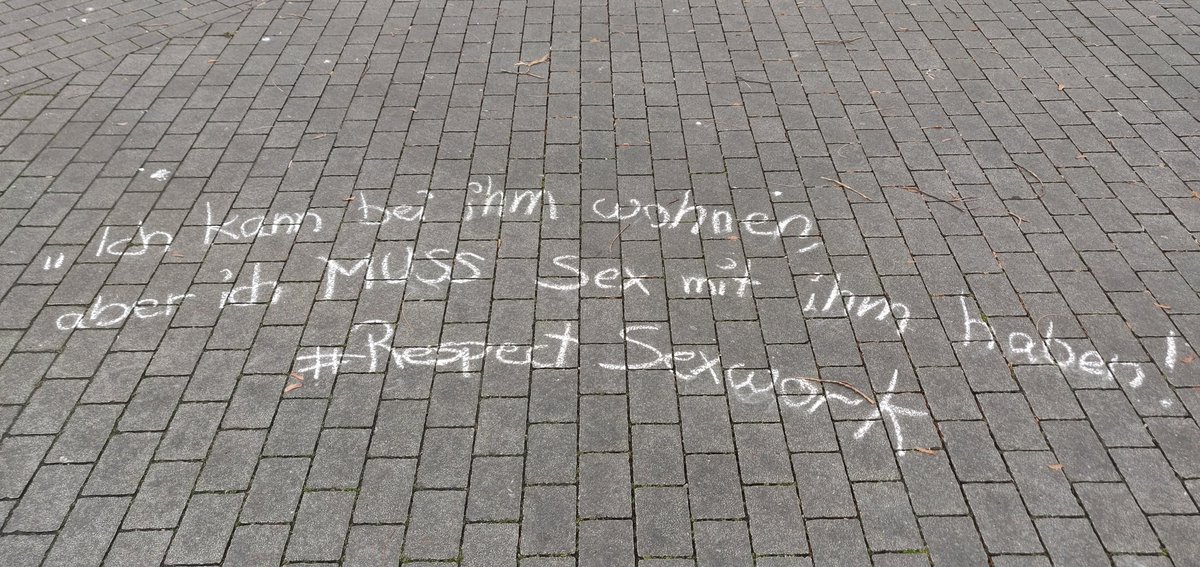 "Ich kann bei ihm wohnen,
aber ich MUSS Sex mit ihm haben!"
#Respect Sexwork